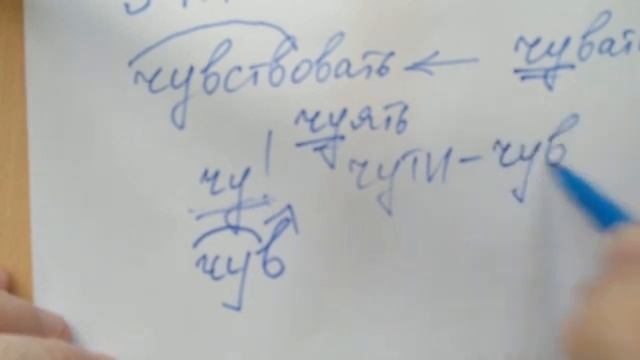 чувствовать ← чувать
чуять
чу! чути – чув
чув